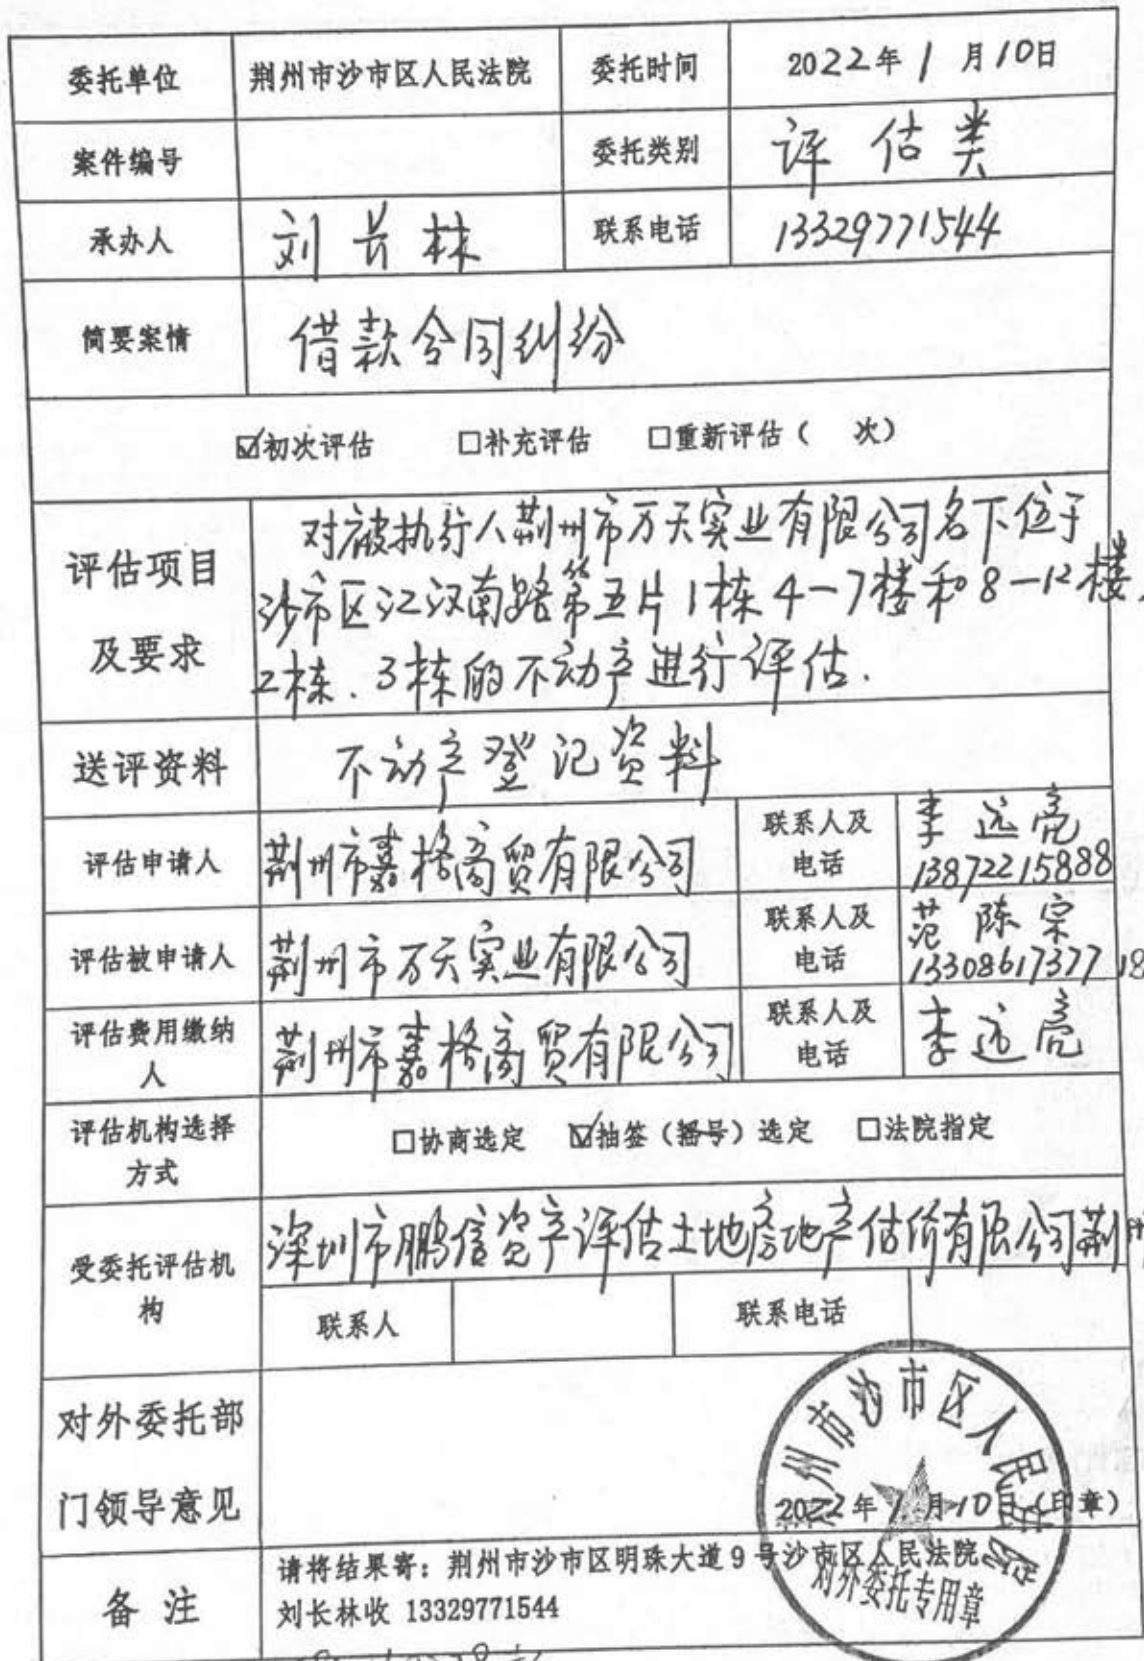 委托单位 荆州市沙市区人民法院 委托时间 2022年1月10日
案件编号 委托类别 评估类
承办人 刘长林 联系电话 13329771544
简要案情 借款合同纠纷
☑初次评估 □补充评估 □重新评估( 次)
评估项目
及要求
对被执行人荆州市万天实业有限公司名下位于
沙市区江汉南路第五片1栋4-7楼和8-12楼、
2栋、3栋的不动产进行评估.
送评资料 不动产登记资料
评估申请人 荆州市嘉格商贸有限公司
联系人及
电话
李远亮
13872215888
评估被申请人 荆州市万天实业有限公司
联系人及
电话
范陈宗
13308617377 18
评估费用缴纳
人
荆州市嘉格商贸有限公司
联系人及
电话
李远亮
评估机构选择
方式
□协商选定 ☑抽签(摇号)选定 □法院指定
受委托评估机
构
深圳市鹏信资产评估土地房地产估价有限公司荆州
联系人 联系电话
对外委托部
门领导意见
2022年1月10日(印章)
荆州市沙市区人民法院
对外委托专用章
备注
请将结果寄:荆州市沙市区明珠大道9号沙市区人民法院
刘长林收 13329771544